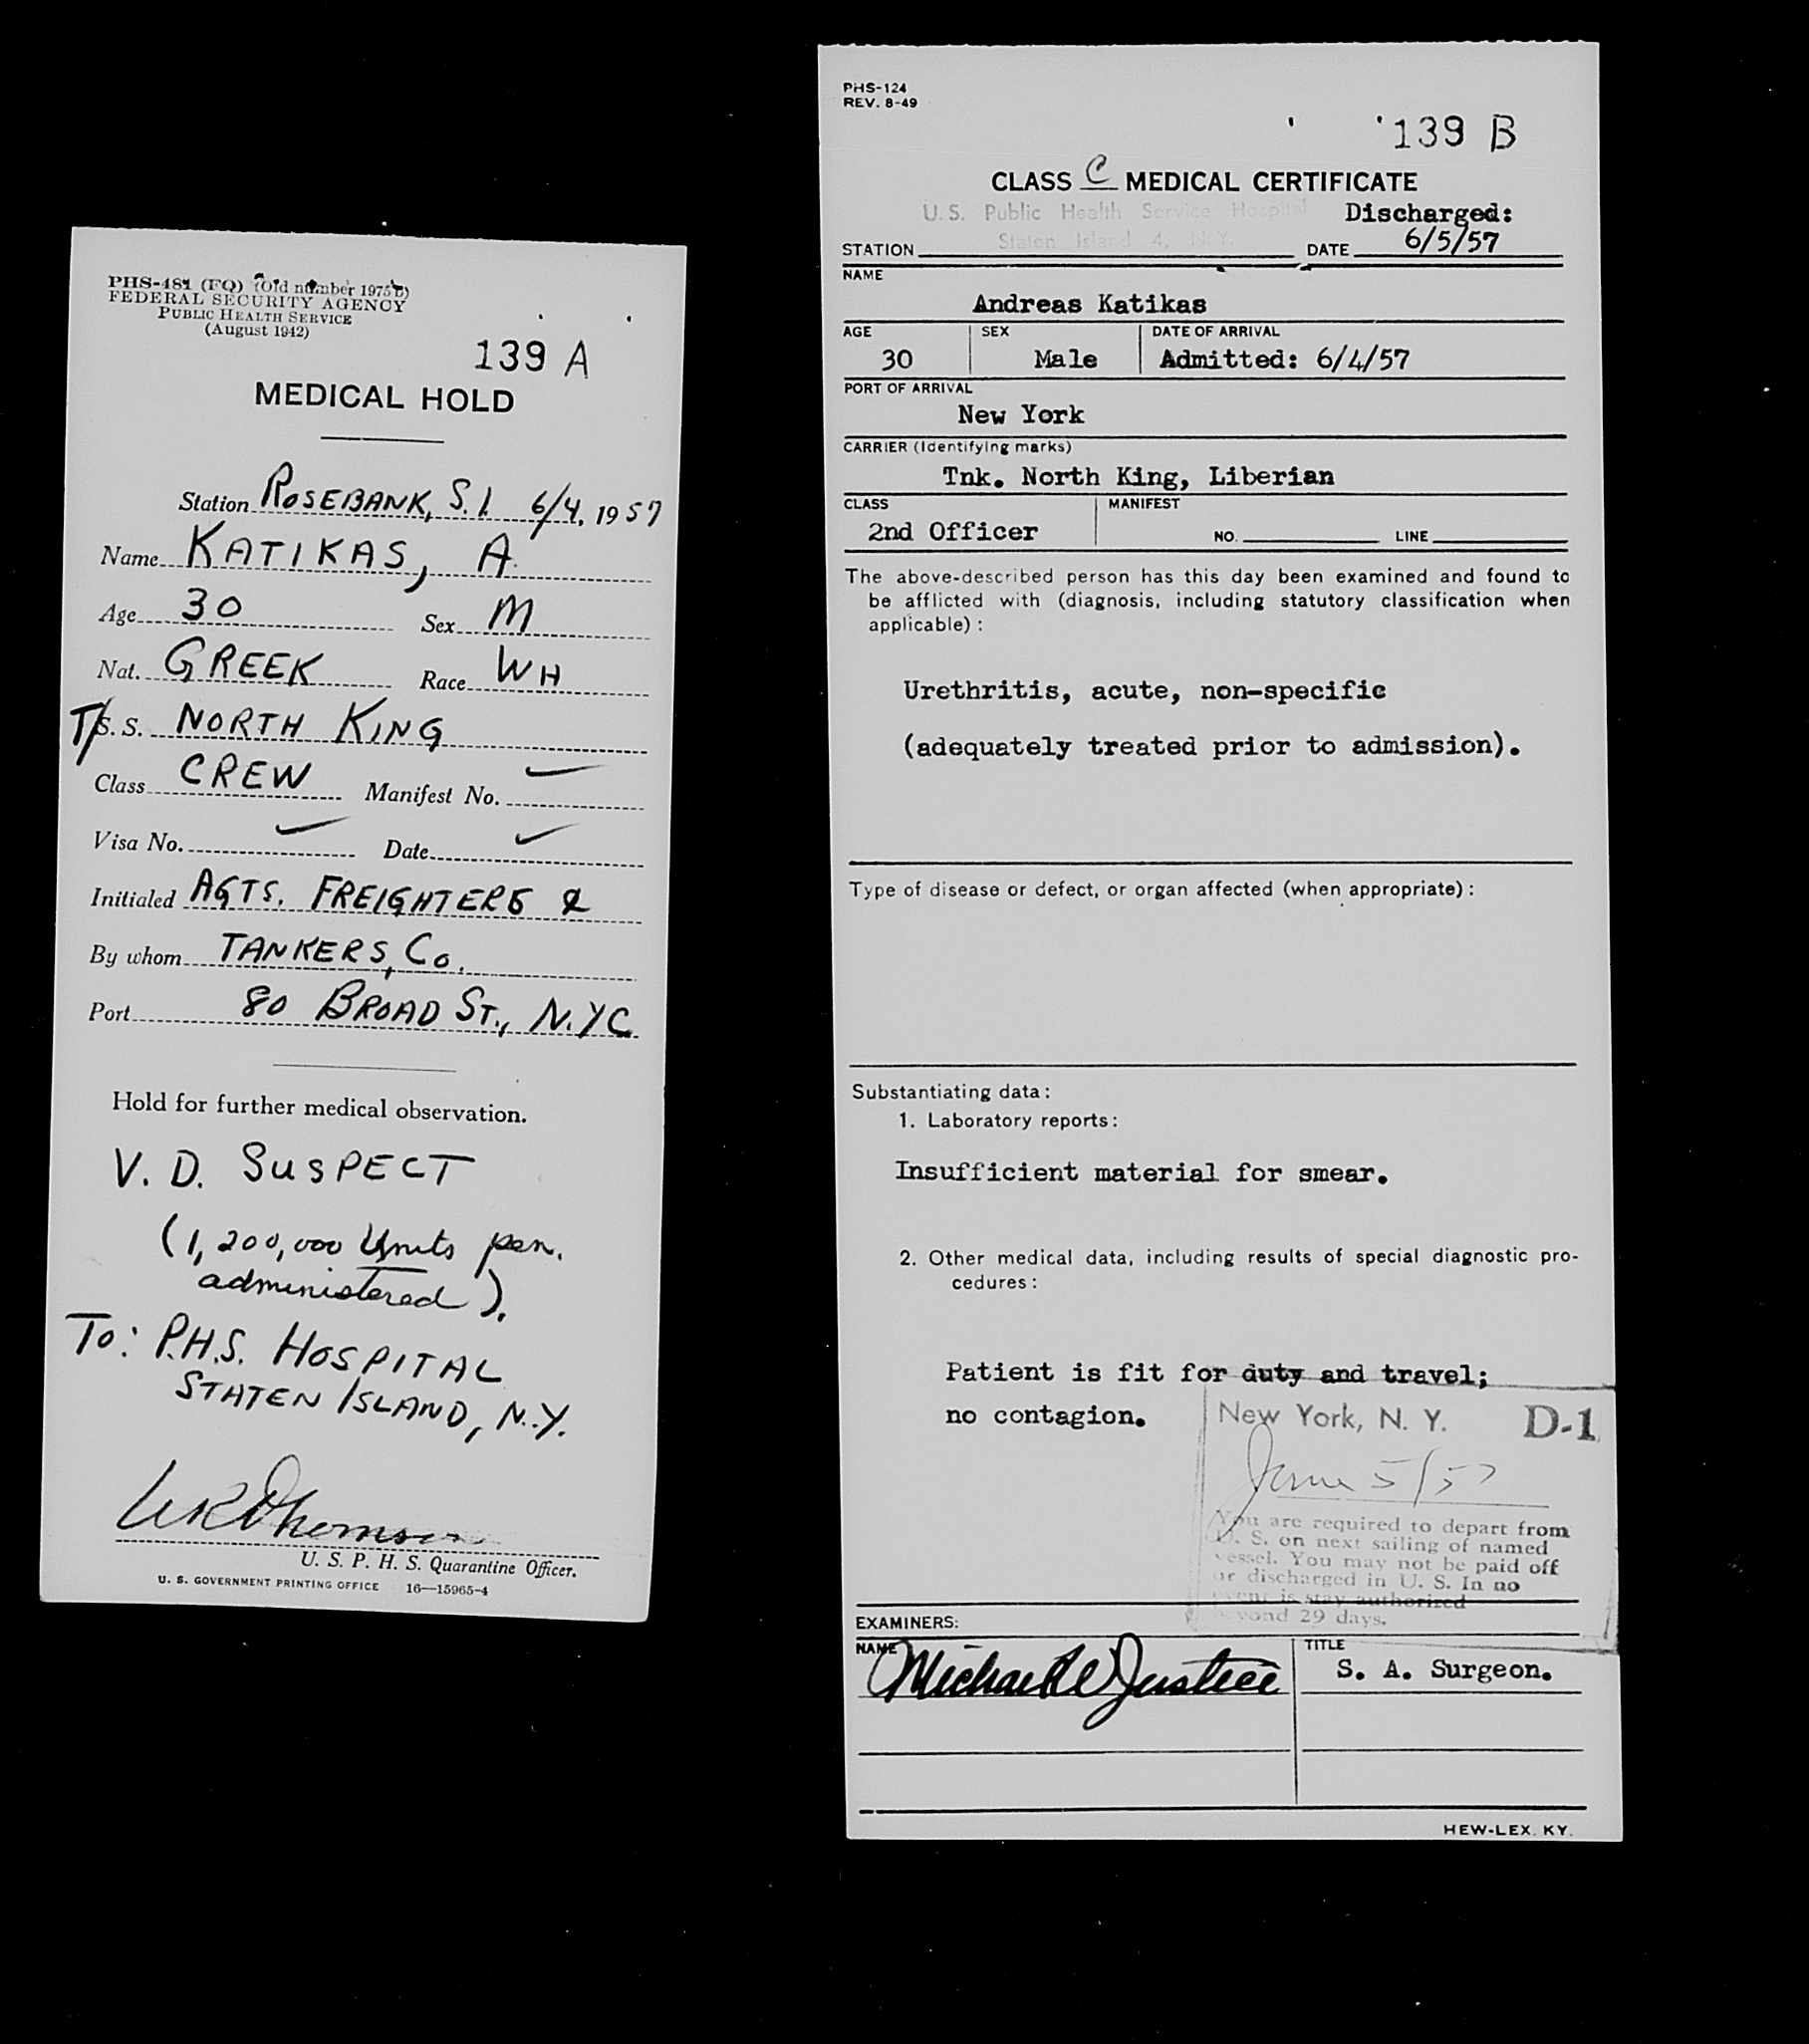 PHS-481 (FQ) (Old number 1975b)
FEDERAL SECURITY AGENCY
PUBLIC HEALTH SERVICE
(August 1942)
139 A
MEDICAL HOLD
Station ROSEBANK, S.I. 6/4, 1957
Name KATIKAS, A.
Age 30 Sex M
Nat. GREEK Race WH
T/S. S. NORTH KING
Class CREW Manifest No. ✓
Visa No. ✓ Date ✓
Initialed AGTS. FREIGHTERS &
By whom TANKERS, Co.
Port 80 BROAD ST., N.Y.C.
Hold for further medical observation.
V. D. SUSPECT
(1,200,000 Units pen.
administered).
To: P.H.S. HOSPITAL
STATEN ISLAND, N.Y.
U. S. P. H. S. Quarantine Officer.
U. S. GOVERNMENT PRINTING OFFICE 16—15965-4
PHS-124
REV. 8-49
139 B
CLASS C MEDICAL CERTIFICATE
U.S. Public Health Service Hospital Discharged:
STATION Staten Island 4, N.Y. DATE 6/5/57
NAME
Andreas Katikas
AGE SEX DATE OF ARRIVAL
30 Male Admitted: 6/4/57
PORT OF ARRIVAL
New York
CARRIER (Identifying marks)
Tnk. North King, Liberian
CLASS MANIFEST
2nd Officer NO. LINE
The above-described person has this day been examined and found to
be afflicted with (diagnosis, including statutory classification when
applicable):
Urethritis, acute, non-specific
(adequately treated prior to admission).
Type of disease or defect, or organ affected (when appropriate):
Substantiating data:
1. Laboratory reports:
Insufficient material for smear.
2. Other medical data, including results of special diagnostic pro-
cedures:
Patient is fit for duty and travel;
no contagion.
New York, N. Y. D-1
June 5/57
You are required to depart from
U. S. on next sailing of named
vessel. You may not be paid off
or discharged in U. S. In no
event is stay authorized
beyond 29 days.
EXAMINERS:
NAME TITLE
Michael W Justice S. A. Surgeon.
HEW-LEX. KY.